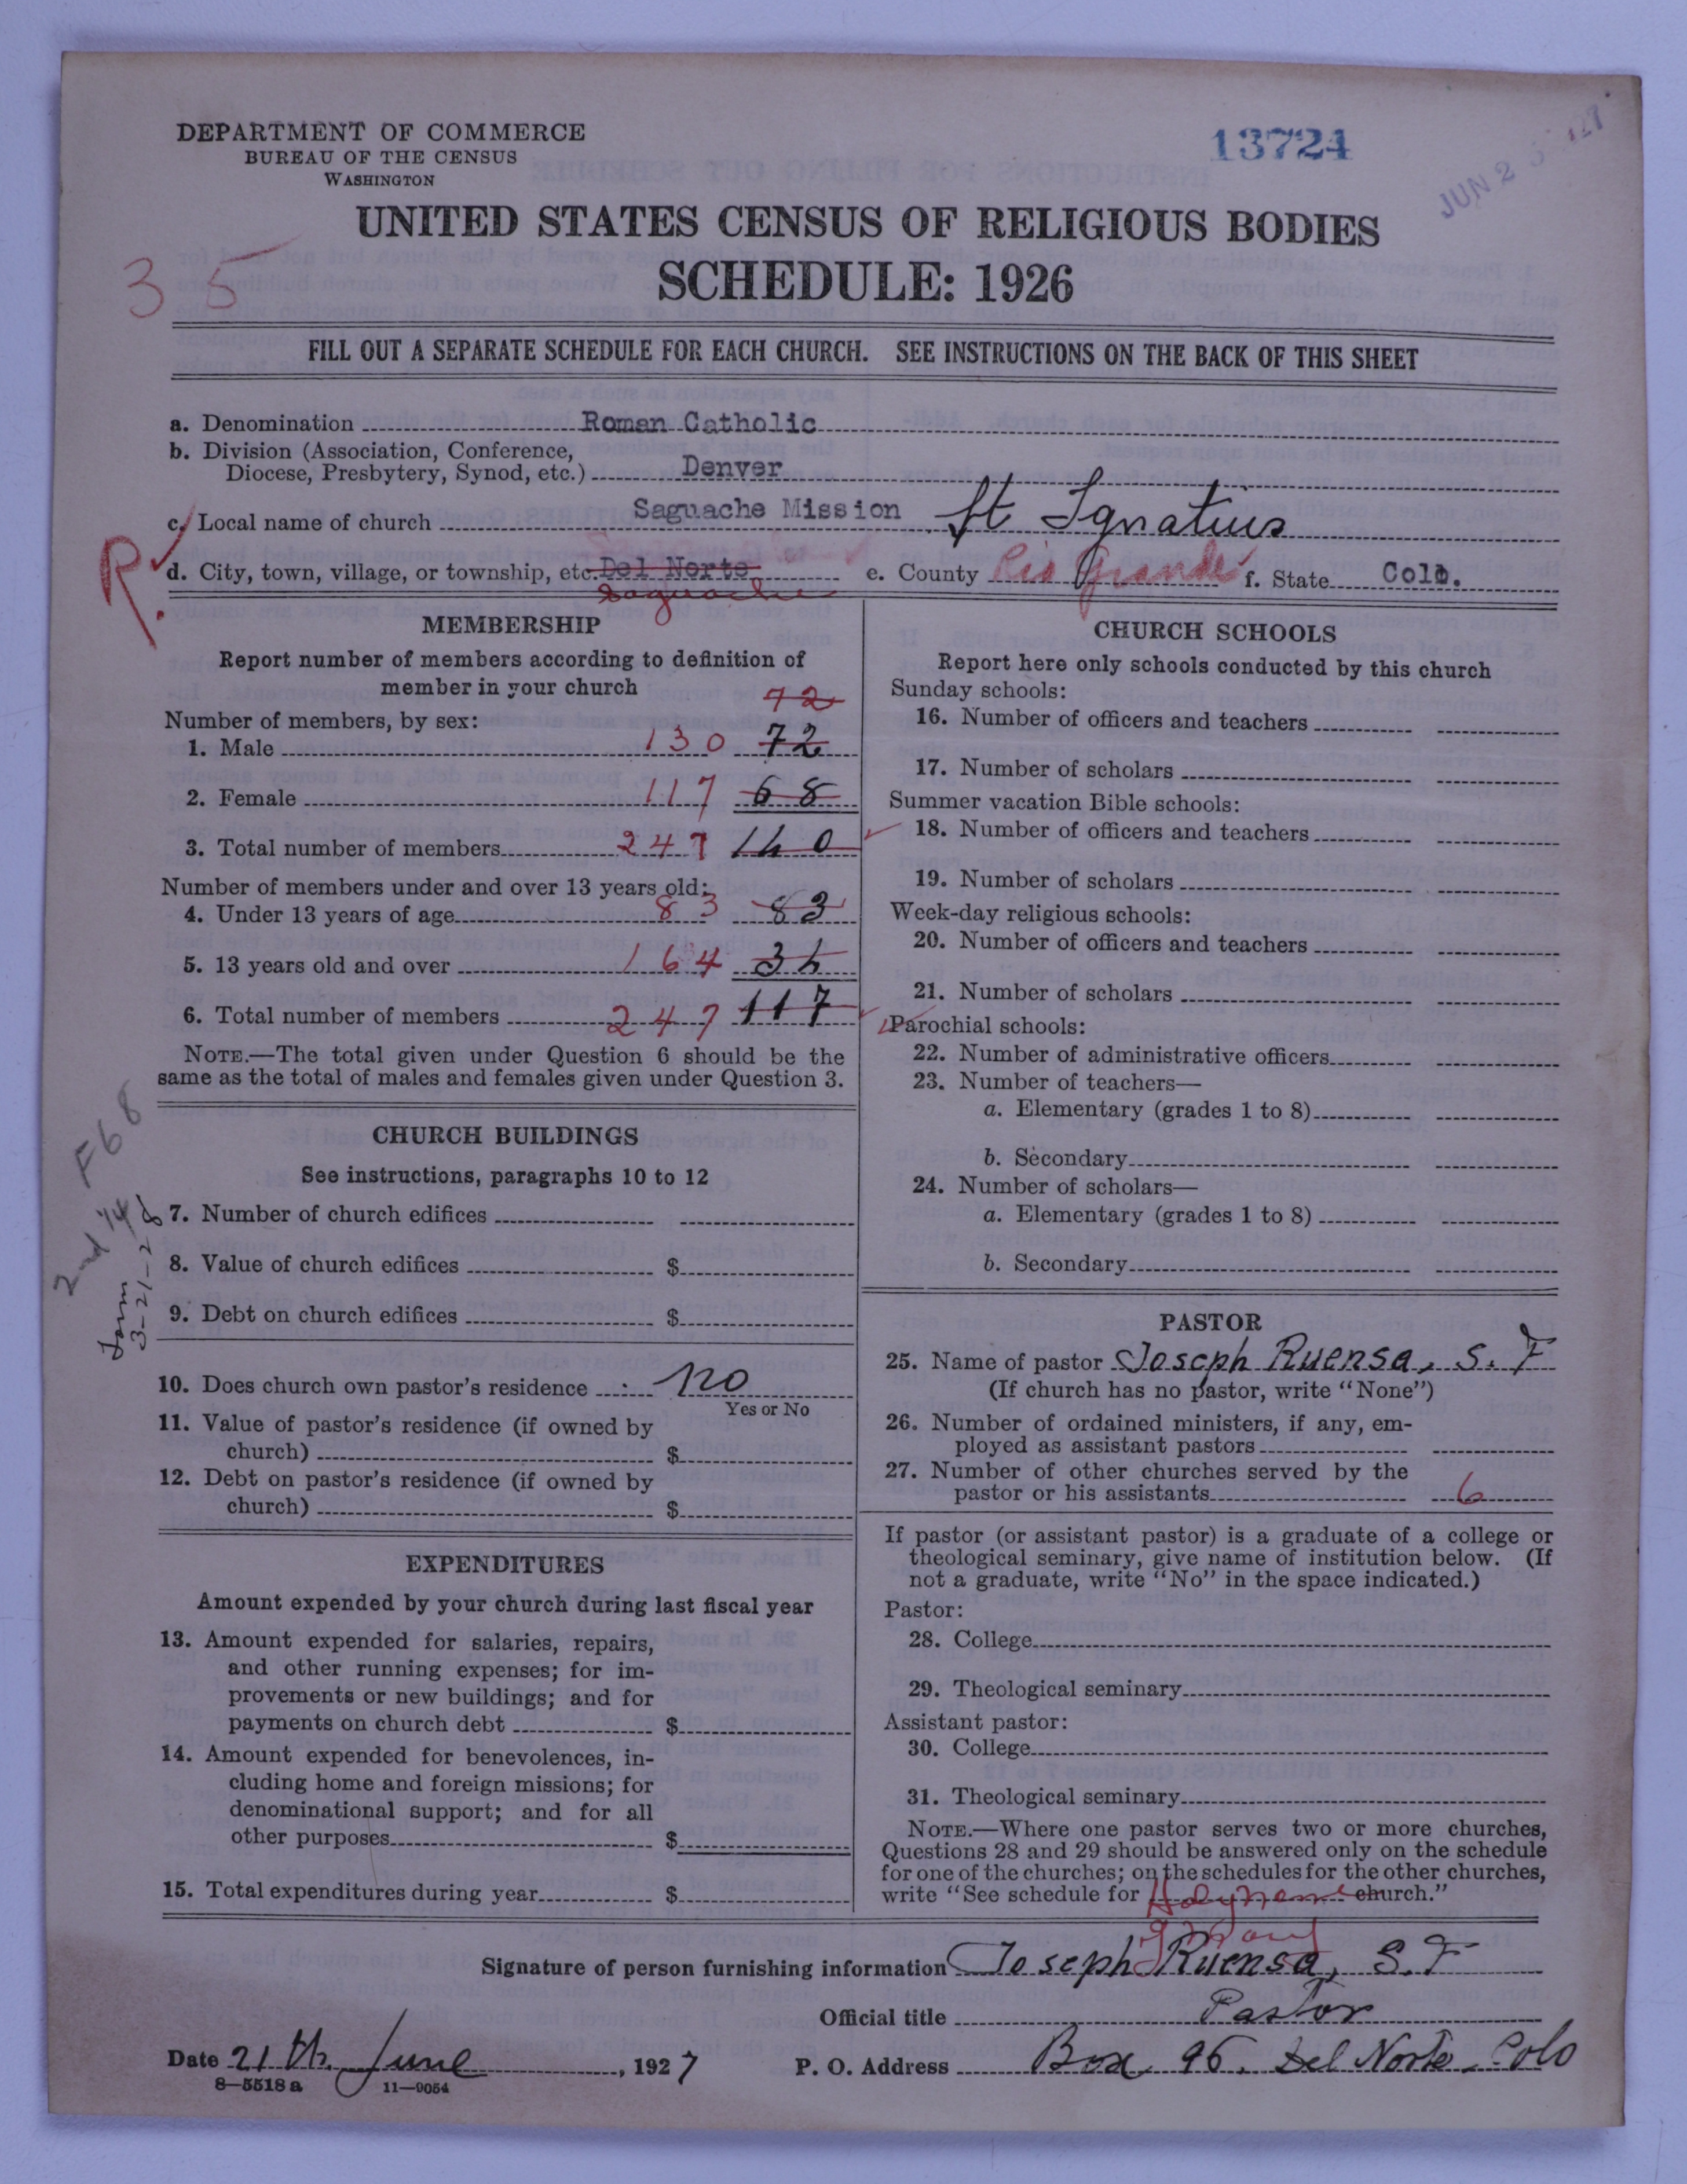 DEPARTMENT OF COMMERCE
BUREAU OF THE CENSUS
WASHINGTON
13724
JUN 2
UNITED STATES CENSUS OF RELIGIOUS BODIES
SCHEDULE: 1926
35
FILL OUT A SEPARATE SCHEDULE FOR EACH CHURCH. SEE INSTRUCTIONS ON THE BACK OF THIS SHEET
a. Denomination Roman Catholic
b. Division (Association, Conference,
Diocese, Presbytery, Synod, etc.) Denver
c. Local name of church Saguache Mission St Ignatius
R.
d. City, town, village, or township, etc. Del Norte e. County Rio Grande f. State Colo.
Saguache
MEMBERSHIP
Report number of members according to definition of
member in your church
72
Number of members, by sex:
1. Male 130 72
2. Female 117 68
3. Total number of members 247 140
Number of members under and over 13 years old:
4. Under 13 years of age 83 83
5. 13 years old and over 164 34
6. Total number of members 247 117
NOTE.—The total given under Question 6 should be the
same as the total of males and females given under Question 3.
F68
2nd
3-21-28
CHURCH BUILDINGS
See instructions, paragraphs 10 to 12
7. Number of church edifices
8. Value of church edifices $
9. Debt on church edifices $
10. Does church own pastor's residence no
Yes or No
11. Value of pastor's residence (if owned by
church) $
12. Debt on pastor's residence (if owned by
church) $
EXPENDITURES
Amount expended by your church during last fiscal year
13. Amount expended for salaries, repairs,
and other running expenses; for im-
provements or new buildings; and for
payments on church debt $
14. Amount expended for benevolences, in-
cluding home and foreign missions; for
denominational support; and for all
other purposes $
15. Total expenditures during year $
CHURCH SCHOOLS
Report here only schools conducted by this church
Sunday schools:
16. Number of officers and teachers
17. Number of scholars
Summer vacation Bible schools:
18. Number of officers and teachers
19. Number of scholars
Week-day religious schools:
20. Number of officers and teachers
21. Number of scholars
Parochial schools:
22. Number of administrative officers
23. Number of teachers—
a. Elementary (grades 1 to 8)
b. Secondary
24. Number of scholars—
a. Elementary (grades 1 to 8)
b. Secondary
PASTOR
25. Name of pastor Joseph Ruensa, S. F
(If church has no pastor, write "None")
26. Number of ordained ministers, if any, em-
ployed as assistant pastors
27. Number of other churches served by the
pastor or his assistants 6
If pastor (or assistant pastor) is a graduate of a college or
theological seminary, give name of institution below. (If
not a graduate, write "No" in the space indicated.)
Pastor:
28. College
29. Theological seminary
Assistant pastor:
30. College
31. Theological seminary
NOTE.—Where one pastor serves two or more churches,
Questions 28 and 29 should be answered only on the schedule
for one of the churches; on the schedules for the other churches,
write "See schedule for Holy Name church."
Signature of person furnishing information Joseph Ruensa, S.F
Official title Pastor
Date 21th June, 1927 P. O. Address Box 96. Del Norte, Colo
8—5518 a 11—9054